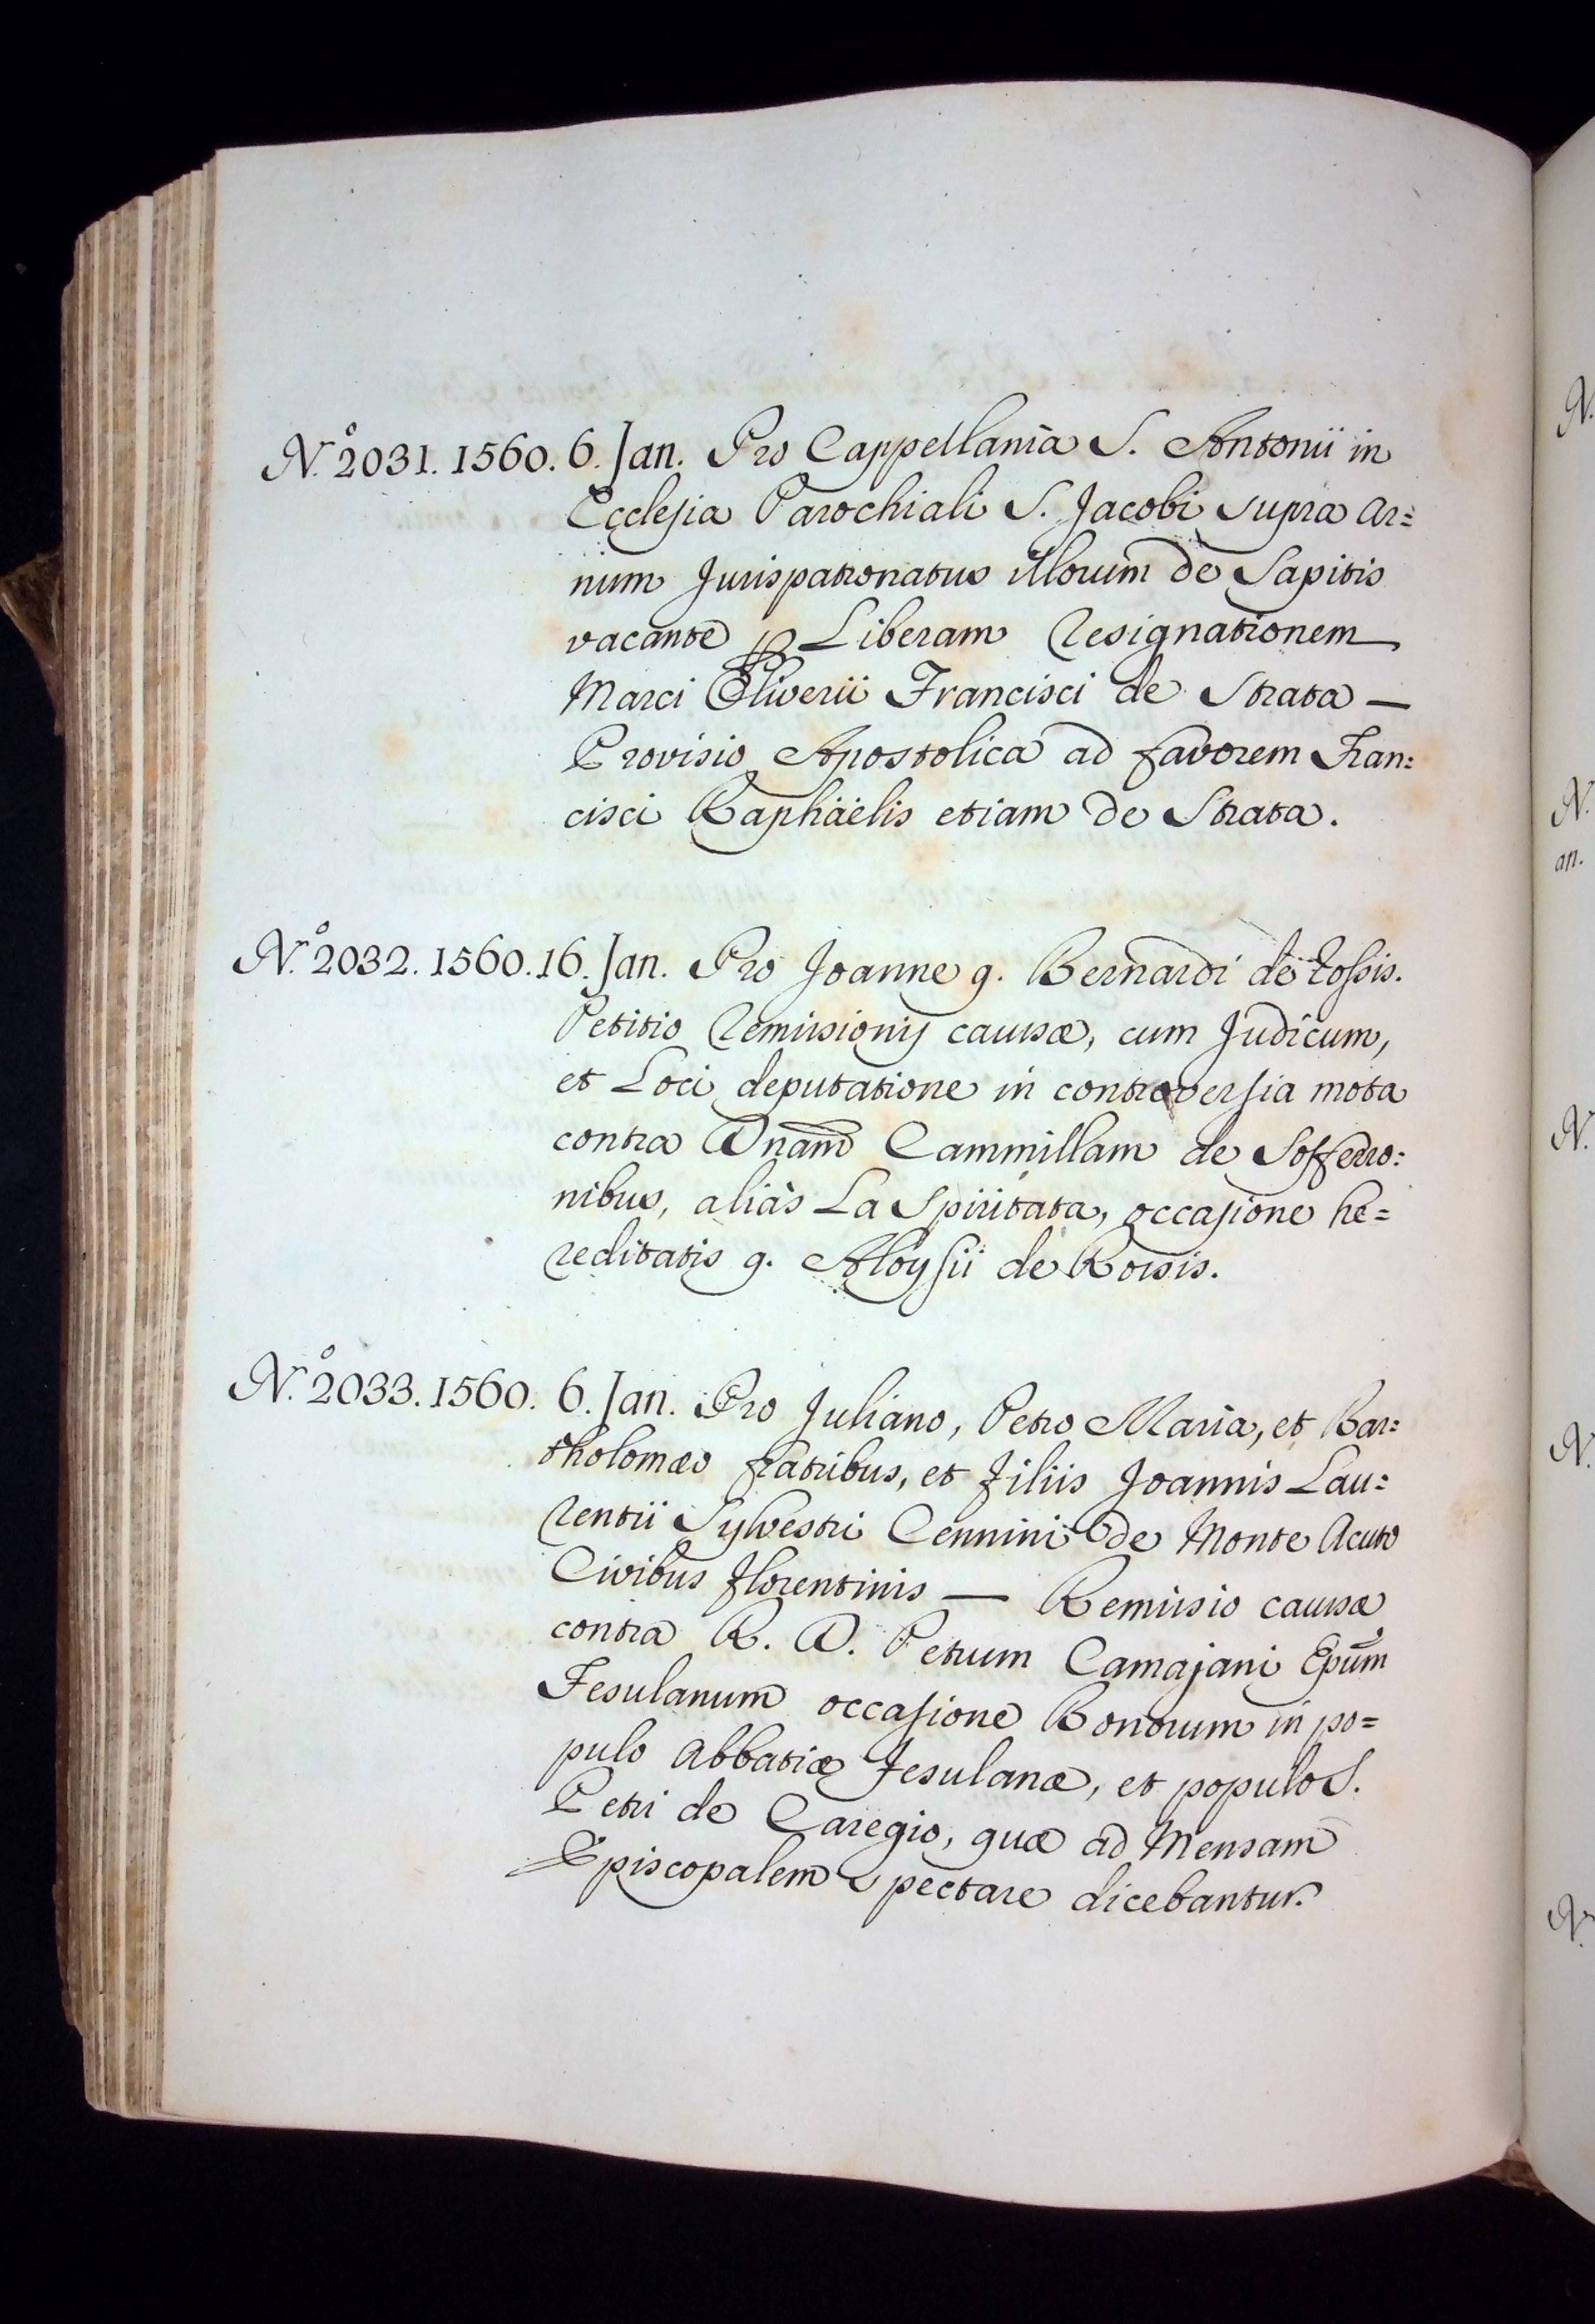 N.º 2031. 1560. 6. Jan. Pro Cappellania S. Antonii in
Ecclesia Parochiali S. Jacobi supra Ar=
num Jurispatronatus illorum de Sapitis
vacante p Liberam Resignationem
Marci Oliverii Francisci de Strata —
Provisio Apostolica ad favorem Fran:
cisci Raphaelis etiam de Strata.
N.º 2032. 1560. 16. Jan. Pro Joanne q. Bernardi de
Petitio Remissionis causæ, cum Judicum,
et Loci deputatione in controversia mota
contra Dnam Cammillam de Sofferro:
nibus, aliàs La Spiritata, occasione he=
reditatis q. Aloysii de Rossis.
N.º 2033. 1560. 6. Jan. Pro Juliano, Petro Maria, et Bar:
tholomæo fratribus, et filiis Joannis Lau:
rentii Sylvestri Cennini de Monte Acuto
Civibus florentinis — Remissio causæ
contra R. D. Petrum Camajani Epum
Fesulanum occasione Bonorum in po=
pulo Abbatiæ Fesulanæ, et populo S.
Petri de Caregio, quæ ad Mensam
Episcopalem spectare dicebantur.
N.
N.
an.
N.
N.
N.